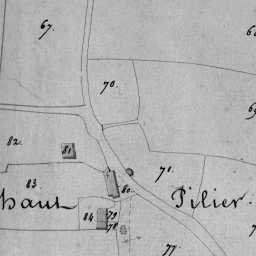 67.
70.
82.
81
71.
83.
80.
haut
Pilier.
84
79
78
77.